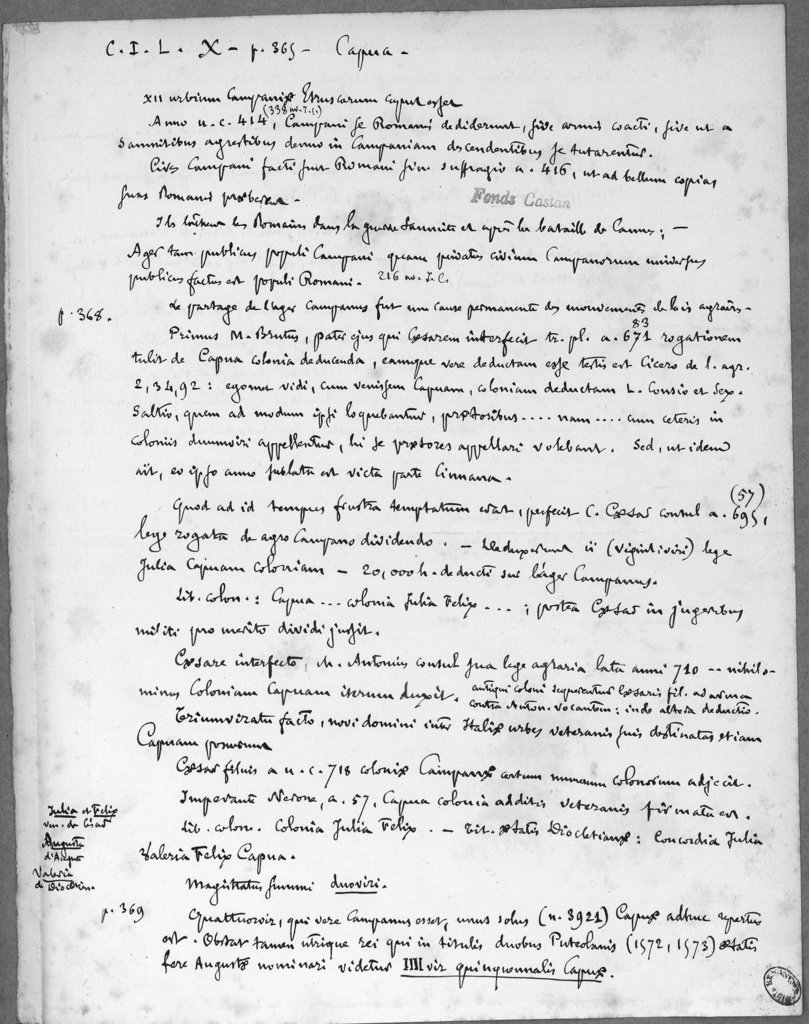 C. I. L. X – p. 365 – Capua –
XII urbium Campaniæ Etruscarum caput esset
(338 av. J. C.)
Anno u. c. 414, Campani se Romanis dediderunt, sive armis coacti, sive ut a
Samnitibus agrestibus denuo in Campaniam descendentibus se tutarentur.
Cives Campani facti sunt Romani sine suffragio a. 416, ut ad bellum copias
suas Romanis præberent –
Fonds Castan
Ils les Romains dans la guerre Samnite et après la bataille de Cannes ; –
Ager tam publicus populi Campani quam privatus civium Campanorum universus
publicus factus est populi Romani. 216 av. J. C.
p. 368.
Le partage de l'ager Campanus fut une cause permanente des mouvements de lois agraires –
83
Primus M. Brutus, pater ejus qui Cæsarem interfecit tr. pl. a. 671 rogationem
tulit de Capua colonia deducenda, eamque vere deductam esse testis est Cicero de l. agr.
2, 34, 92 : egomet vidi, cum venissem Capuam, coloniam deductam L. Consio et Sex.
Saltio, quem ad modum ipsi loquebantur, prætoribus .... nam .... cum ceteris in
coloniis duumviri appellentur, hi se prætores appellari volebant. Sed, ut idem
ait, eo ipso anno sublata est victa parte Cinnana.
(57)
Quod ad id tempus frustra temptatum erat, perfecit C. Cæsar consul a. 695,
lege rogata de agro Campano dividendo. – Deduxerunt ii (vigintiviri) lege
Julia Capuam coloniam – 20,000 h. deducti sur l'ager Campanus.
Lib. colon. : Capua ... colonia Julia Felix ... ; postea Cæsar in jugeribus
militi pro merito dividi jussit.
Cæsare interfecto, M. Antonius consul sua lege agraria lata anni 710 -- nihilo-
minus Coloniam Capuam iterum duxit. antiqui coloni Cæsaris fil. ad arma
contra Anton. vocantur : inde altera deductio.
Triumviratu facto, novi domini inter Italiæ urbes veteranis suis destinatas etiam
Capuam posuerunt
Cæsar filius a u. c. 718 coloniæ Campanæ certum numerum colonorum adjecit.
Imperante Nerone, a. 57, Capua colonia additis veteranis firmata est.
Julia et Felix
de César
Augusta
d'Auguste
Valeria
de Dioclétien.
Lib. colon. Colonia Julia Felix. – Tit. ætatis Diocletianæ : Concordia Julia
Valeria Felix Capua.
Magistratus summi duoviri.
p. 369
Quattuorvir, qui vere Campanus esset, unus solus (n. 3921) Capuæ adhuc repertus
est. Obstat tamen utrique rei qui in titulis duobus Puteolanis (1572, 1573) ætatis
fere Augustæ nominari videtur IIII vir quinquennalis Capuæ.